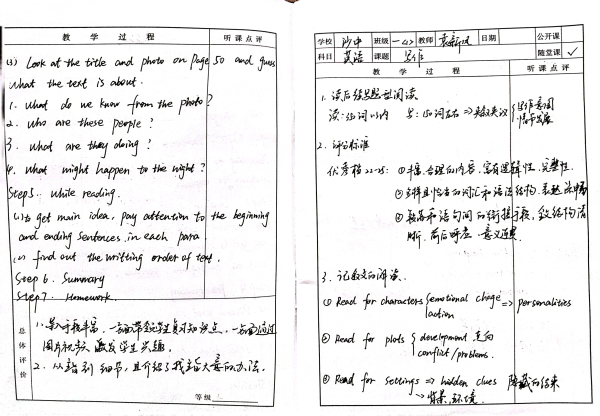 教 学 过 程 听课点评
(3) Look at the title and photo on Page 50 and guess
What the text is about.
1. What do we know from the photo?
2. Who are these people?
3. What are they doing?
4. What might happen to the night?
Step5. While reading.
(1) to get main idea, pay attention to the beginning
and ending sentences in each para.
(2) find out the writting order of text.
Step 6. Summary
Step 7. Homework.
总体评价
1. 导入手段丰富,一方面带领学生复习知识点,一方面通过
图片视频 激发学生兴趣.
2. 从语到细节,且介绍了找主旨大意的办法.
等级
学校 沙中 班级 教师 日期 公开课
科目 英语 课题 写作 随堂课 ✓
教 学 过 程 听课点评
1. 读后续写题型阅读.
读:350词以内 写:150词左右 ⇒
2. 评分标准
优秀档 22-25: ①丰富、合理的内容,富有逻辑性、完整性.
②多样且恰当的词汇和语法结构,
③段落和语句间的衔接手段,结构清
晰,前后呼应,意义连贯.
3. 记叙文的解读.
① Read for characters { emotional chage action => personalities
② Read for plots { development 走向 conflict/problems.
③ Read for settings => hidden clues 隐藏的线索
→ 背景,环境.